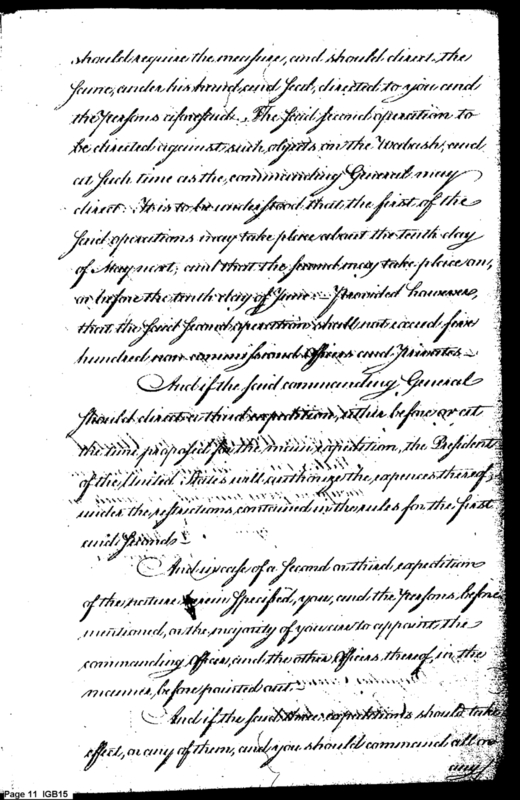 should require the measure, and should direct the
same, under his hand, and seal, directed to you and
the Persons aforesaid. The said second operation to
be directed against such objects on the Wabash, and
at such time as the commanding General may
direct. It is to be understood that the first of the
said operations may take place about the tenth day
of May next, and that the second may take place on,
or before the tenth day of June. Provided however,
that the said second operation shall not exceed five
hundred non commissioned Officers and Privates.
And if the said commanding General
should direct a third expedition, either before or at
the time proposed for the main expedition, the President
of the United States will authorize the expences thereof,
under the restrictions, contained in the rules for the first
and second.
And in case of a second or third expedition
of the nature herein specified, you, and the Persons before
mentioned, or the majority of you are to appoint, the
commanding Officer, and the other Officers thereof, in the
manner, before pointed out.
And if the said three expeditions should take
effect, or any of them, and you should command all or
any
Page 11 IGB15